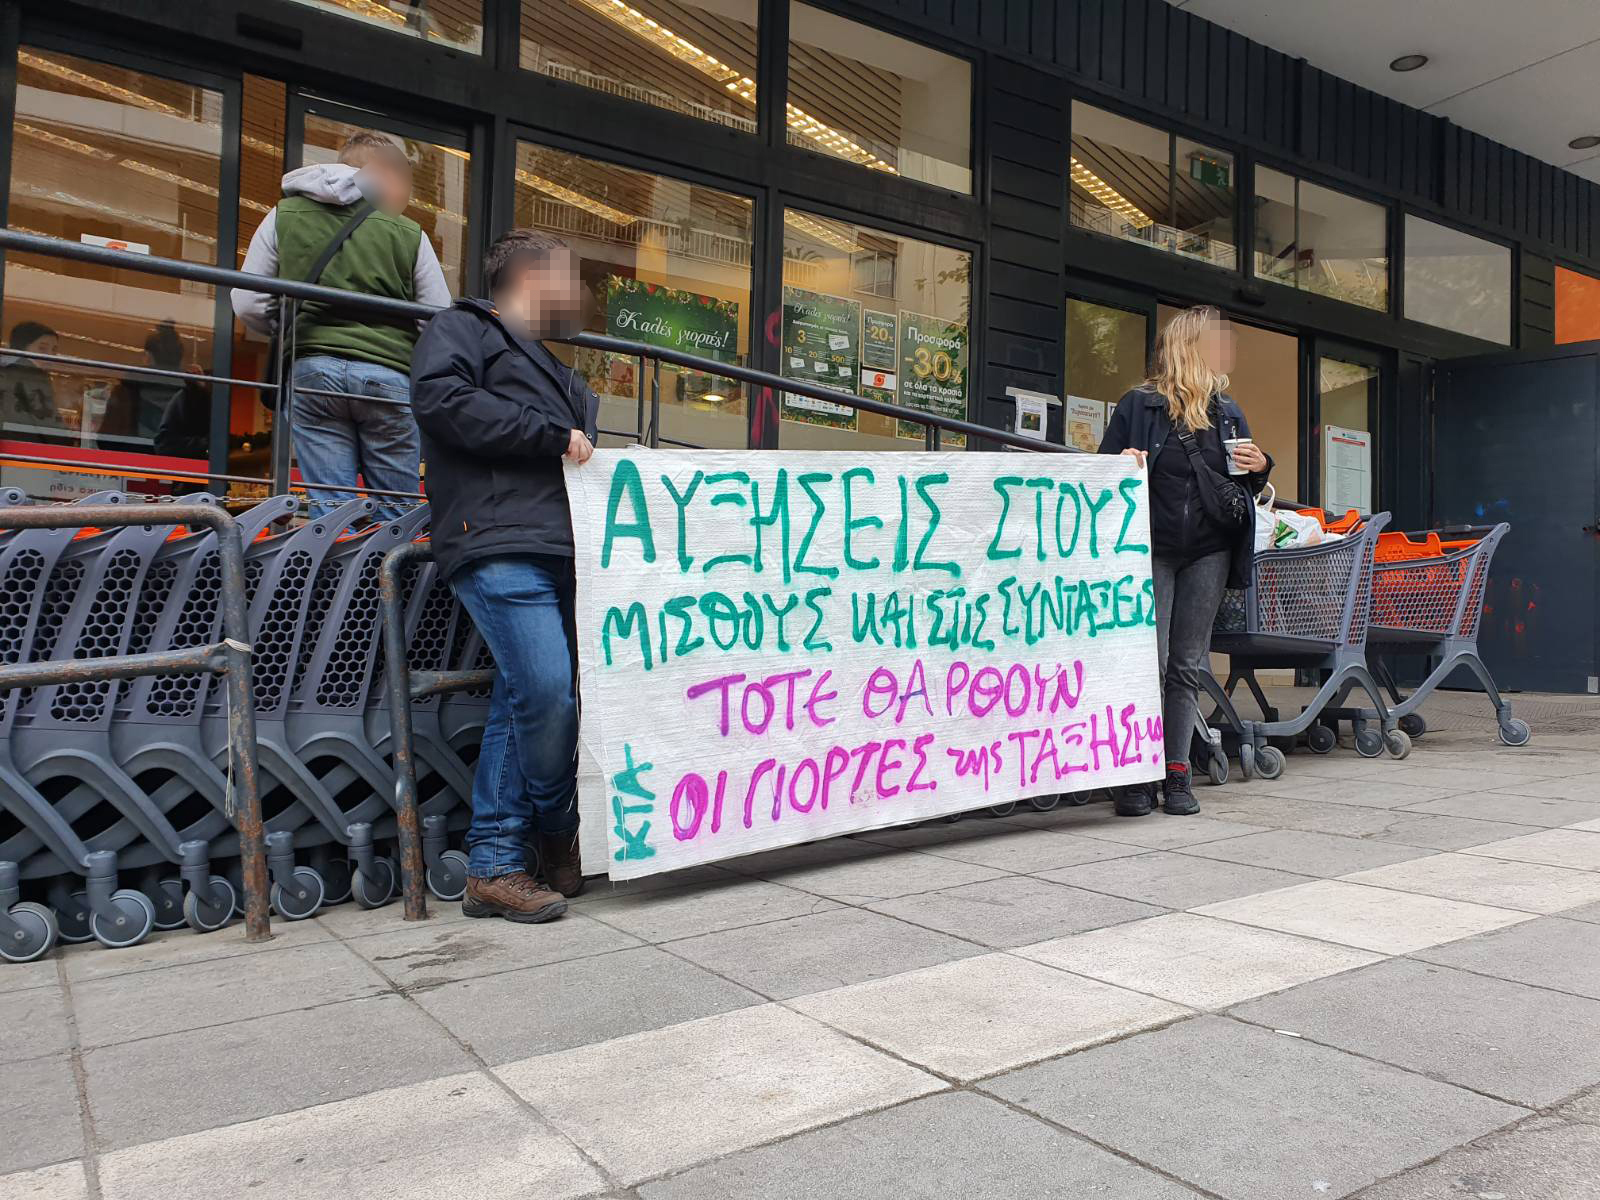 ΑΥΞΗΣΕΙΣ ΣΤΟΥΣ
ΜΙΣΘΟΥΣ ΚΑΙ ΣΤΙΣ ΣΥΝΤΑΞΕΙΣ
ΤΟΤΕ ΘΑ ΡΘΟΥΝ
ΟΙ ΓΙΟΡΤΕΣ της ΤΑΞΗΣ μας
ΚΤΑ
Καλές γιορτές!
Καλές γιορτές!
3
10
20
500
Προσφορά
-20%
Προσφορά
-30%
σε όλα τα κρασιά